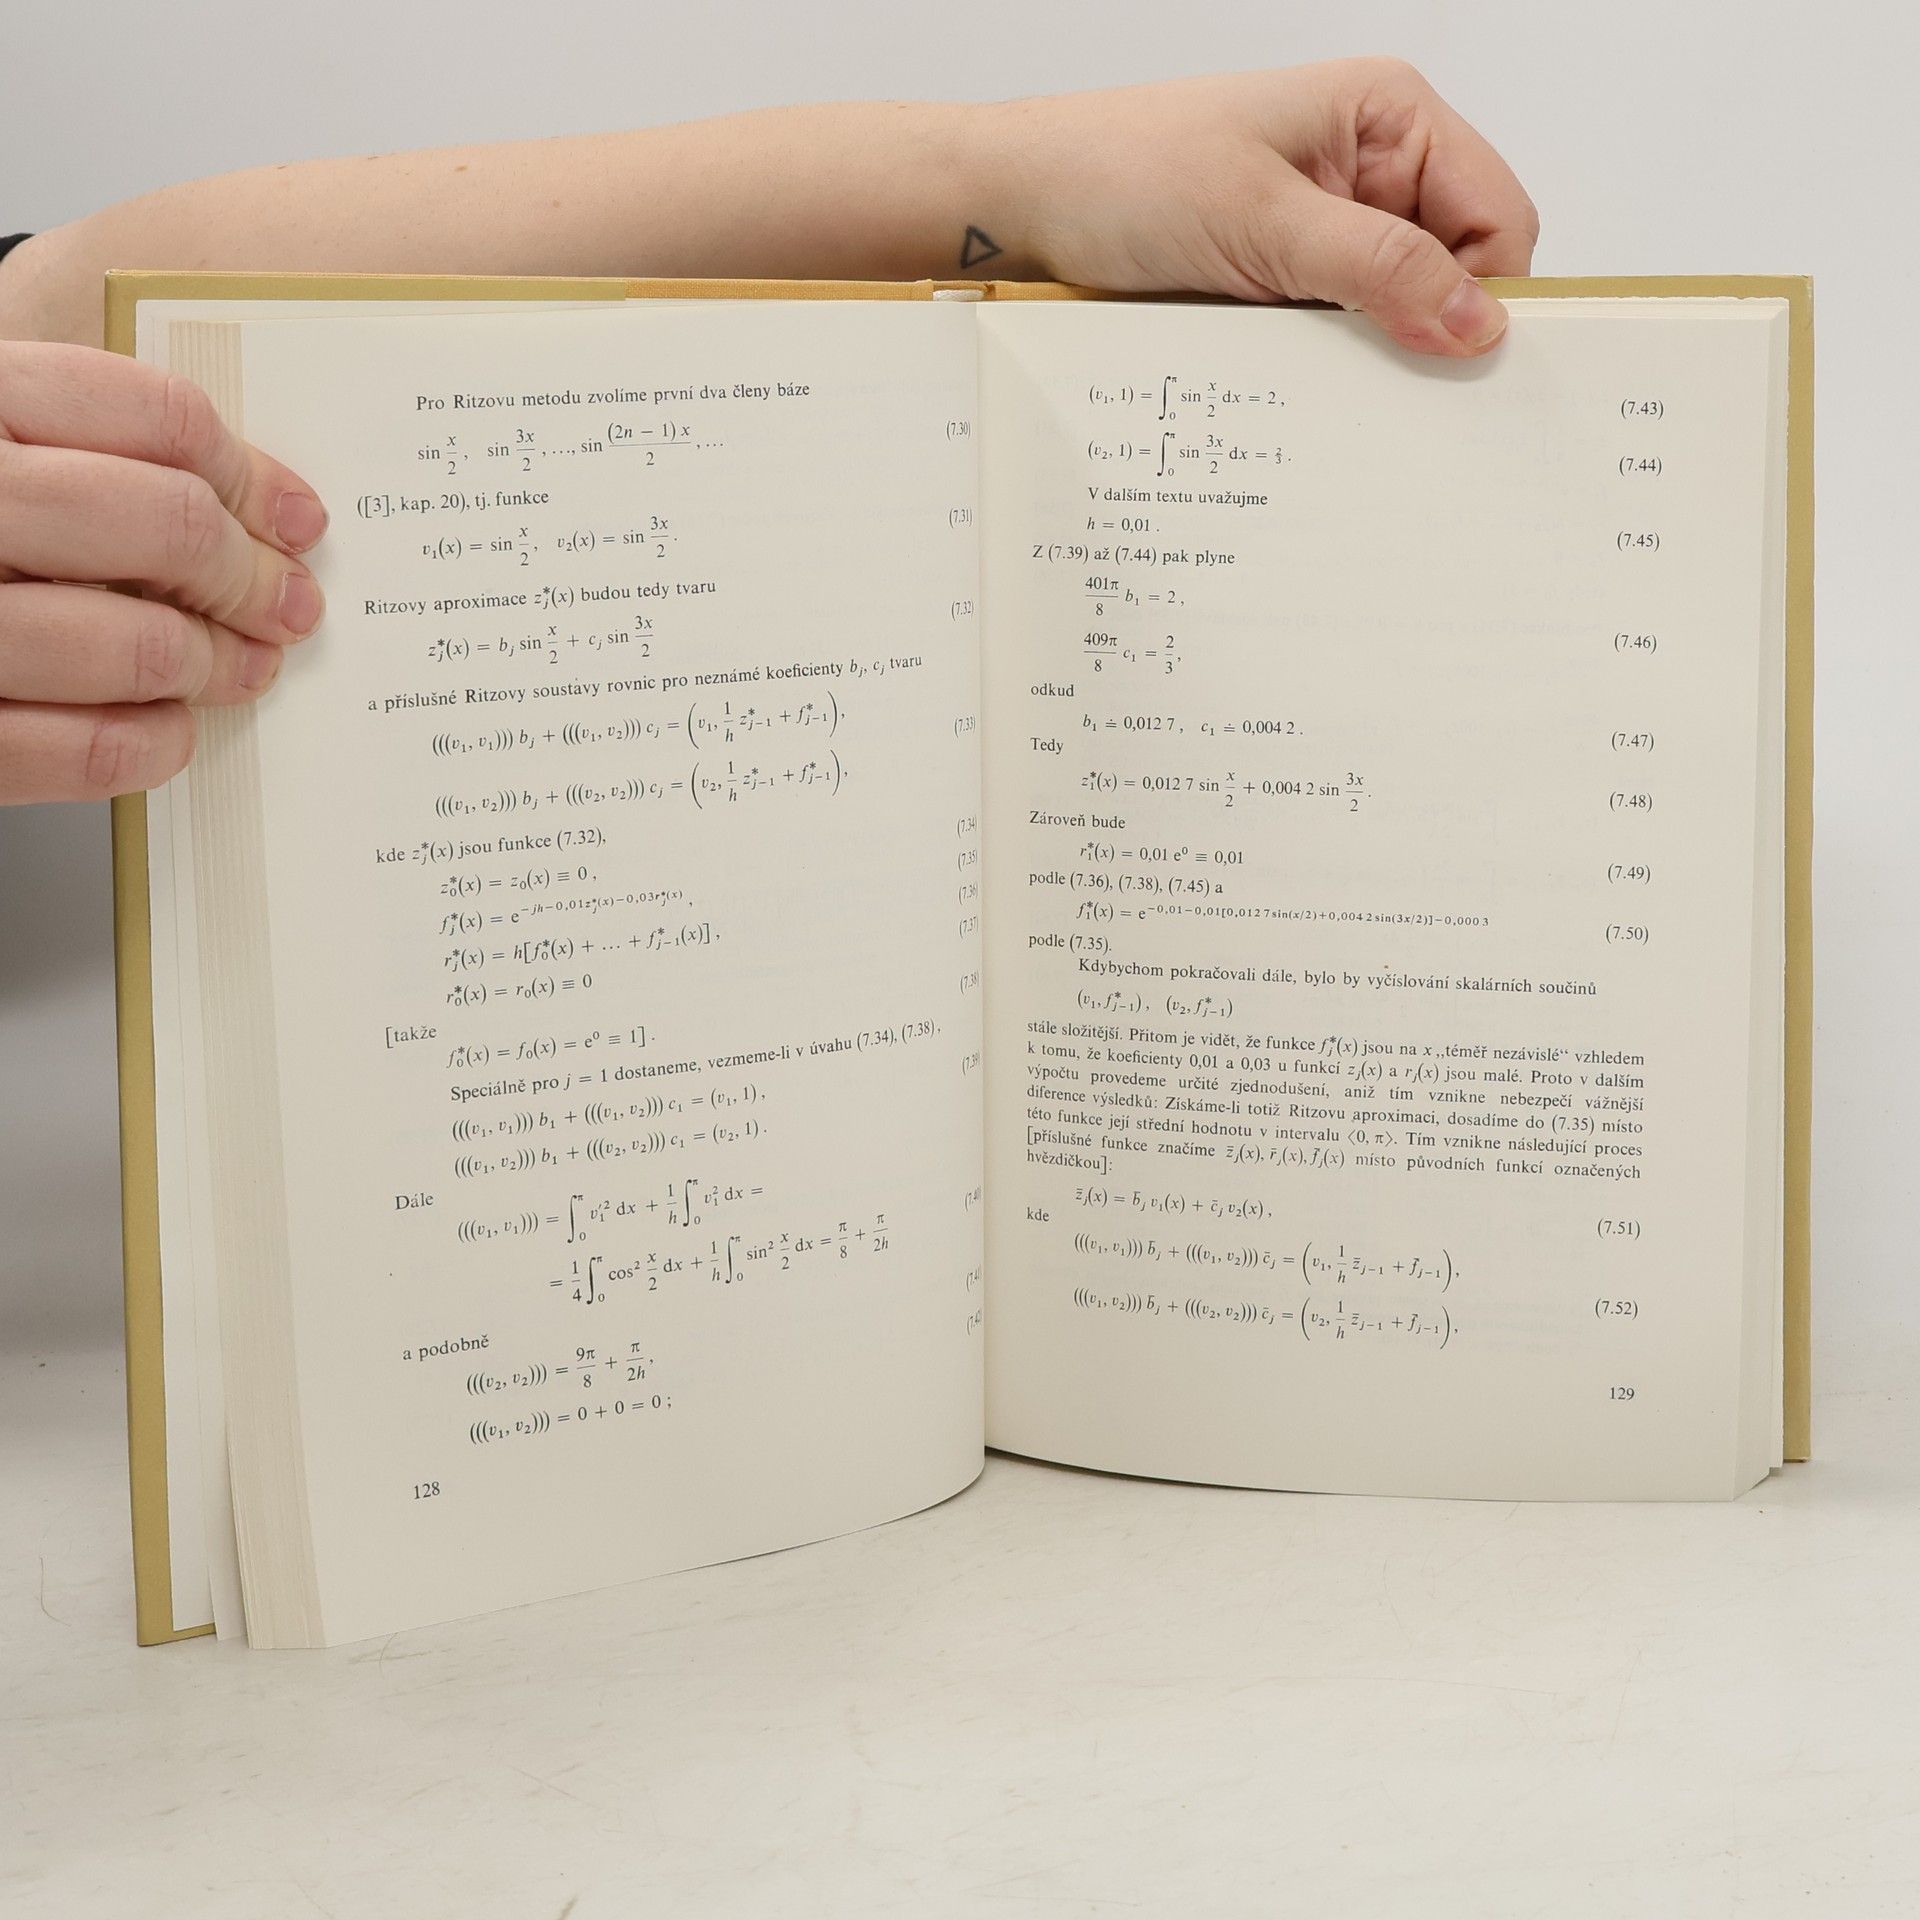 Pro Ritzovu metodu zvolíme první dva členy báze
sin x/2, sin 3x/2, ..., sin (2n − 1) x/2, ... (7.30)
([3], kap. 20), tj. funkce
v₁(x) = sin x/2, v₂(x) = sin 3x/2. (7.31)
Ritzovy aproximace z*ⱼ(x) budou tedy tvaru
z*ⱼ(x) = bⱼ sin x/2 + cⱼ sin 3x/2 (7.32)
a příslušné Ritzovy soustavy rovnic pro neznámé koeficienty bⱼ, cⱼ tvaru
(((v₁, v₁))) bⱼ + (((v₁, v₂))) cⱼ = (v₁, 1/h z*ⱼ₋₁ + f*ⱼ₋₁), (7.33)
(((v₁, v₂))) bⱼ + (((v₂, v₂))) cⱼ = (v₂, 1/h z*ⱼ₋₁ + f*ⱼ₋₁),
kde z*ⱼ(x) jsou funkce (7.32),
z*₀(x) = z₀(x) ≡ 0, (7.34)
f*ⱼ(x) = e^(−jh−0,01z*ⱼ(x)−0,03r*ⱼ(x)), (7.35)
r*ⱼ(x) = h[f*₀(x) + ... + f*ⱼ₋₁(x)], (7.36)
r*₀(x) = r₀(x) ≡ 0 (7.37)
[takže
f*₀(x) = f₀(x) = e⁰ ≡ 1]. (7.38)
Speciálně pro j = 1 dostaneme, vezmeme-li v úvahu (7.34), (7.38),
(((v₁, v₁))) b₁ + (((v₁, v₂))) c₁ = (v₁, 1), (7.39)
(((v₁, v₂))) b₁ + (((v₂, v₂))) c₁ = (v₂, 1).
Dále
(((v₁, v₁))) = ∫₀^π v₁′² dx + 1/h ∫₀^π v₁² dx =
= 1/4 ∫₀^π cos² x/2 dx + 1/h ∫₀^π sin² x/2 dx = π/8 + π/2h (7.40)
a podobně
(((v₂, v₂))) = 9π/8 + π/2h, (7.41)
(((v₁, v₂))) = 0 + 0 = 0; (7.42)
128
(v₁, 1) = ∫₀^π sin x/2 dx = 2, (7.43)
(v₂, 1) = ∫₀^π sin 3x/2 dx = 2/3. (7.44)
V dalším textu uvažujme
h = 0,01. (7.45)
Z (7.39) až (7.44) pak plyne
401π/8 b₁ = 2,
409π/8 c₁ = 2/3, (7.46)
odkud
b₁ ≐ 0,012 7, c₁ ≐ 0,004 2. (7.47)
Tedy
z*₁(x) = 0,012 7 sin x/2 + 0,004 2 sin 3x/2. (7.48)
Zároveň bude
r*₁(x) = 0,01 e⁰ ≡ 0,01 (7.49)
podle (7.36), (7.38), (7.45) a
f*₁(x) = e^(−0,01−0,01[0,012 7 sin(x/2)+0,004 2 sin(3x/2)]−0,000 3) (7.50)
podle (7.35).
Kdybychom pokračovali dále, bylo by vyčíslování skalárních součinů
(v₁, f*ⱼ₋₁), (v₂, f*ⱼ₋₁)
stále složitější. Přitom je vidět, že funkce f*ⱼ(x) jsou na x „téměř nezávislé“ vzhledem
k tomu, že koeficienty 0,01 a 0,03 u funkcí zⱼ(x) a rⱼ(x) jsou malé. Proto v dalším
výpočtu provedeme určité zjednodušení, aniž tím vznikne nebezpečí vážnější
diference výsledků: Získáme-li totiž Ritzovu aproximaci, dosadíme do (7.35) místo
této funkce její střední hodnotu v intervalu ⟨0, π⟩. Tím vznikne následující proces
[příslušné funkce značíme z̄ⱼ(x), r̄ⱼ(x), f̄ⱼ(x) místo původních funkcí označených
hvězdičkou]:
z̄ⱼ(x) = b̄ⱼ v₁(x) + c̄ⱼ v₂(x), (7.51)
kde
(((v₁, v₁))) b̄ⱼ + (((v₁, v₂))) c̄ⱼ = (v₁, 1/h z̄ⱼ₋₁ + f̄ⱼ₋₁),
(((v₁, v₂))) b̄ⱼ + (((v₂, v₂))) c̄ⱼ = (v₂, 1/h z̄ⱼ₋₁ + f̄ⱼ₋₁), (7.52)
129